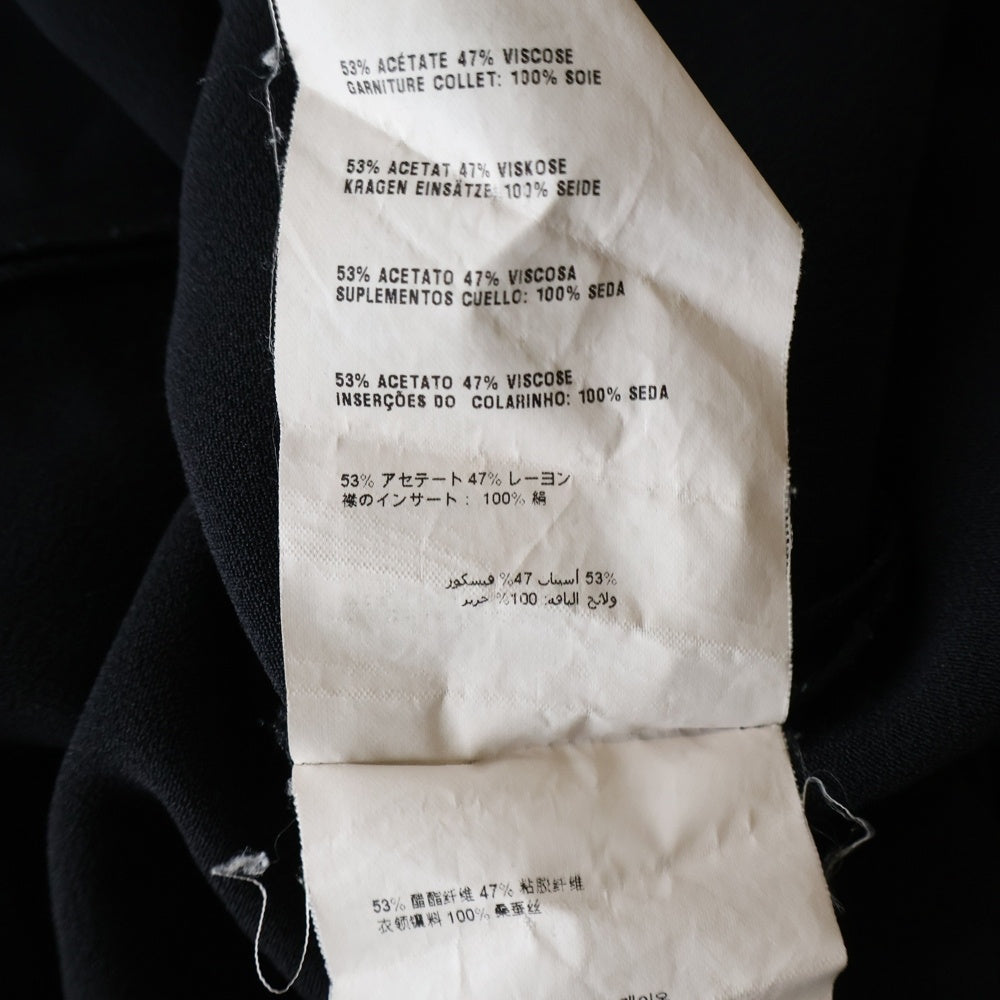 53% ACÉTATE 47% VISCOSE
GARNITURE COLLET: 100% SOIE
53% ACETAT 47% VISKOSE
KRAGEN EINSÄTZE: 100% SEIDE
53% ACETATO 47% VISCOSA
SUPLEMENTOS CUELLO: 100% SEDA
53% ACETATO 47% VISCOSE
INSERÇÕES DO COLARINHO: 100% SEDA
53% アセテート 47% レーヨン
襟のインサート： 100% 絹
53% أسيتات 47% فيسكوز
ولائج الياقة: 100% حرير
53% 醋酯纤维 47% 粘胶纤维
衣领镶料 100% 桑蚕丝